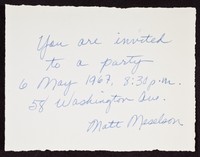 You are invited
to a party
6 May 1967, 8:30 p.m.
58 Washington Ave.
Matt Meselson